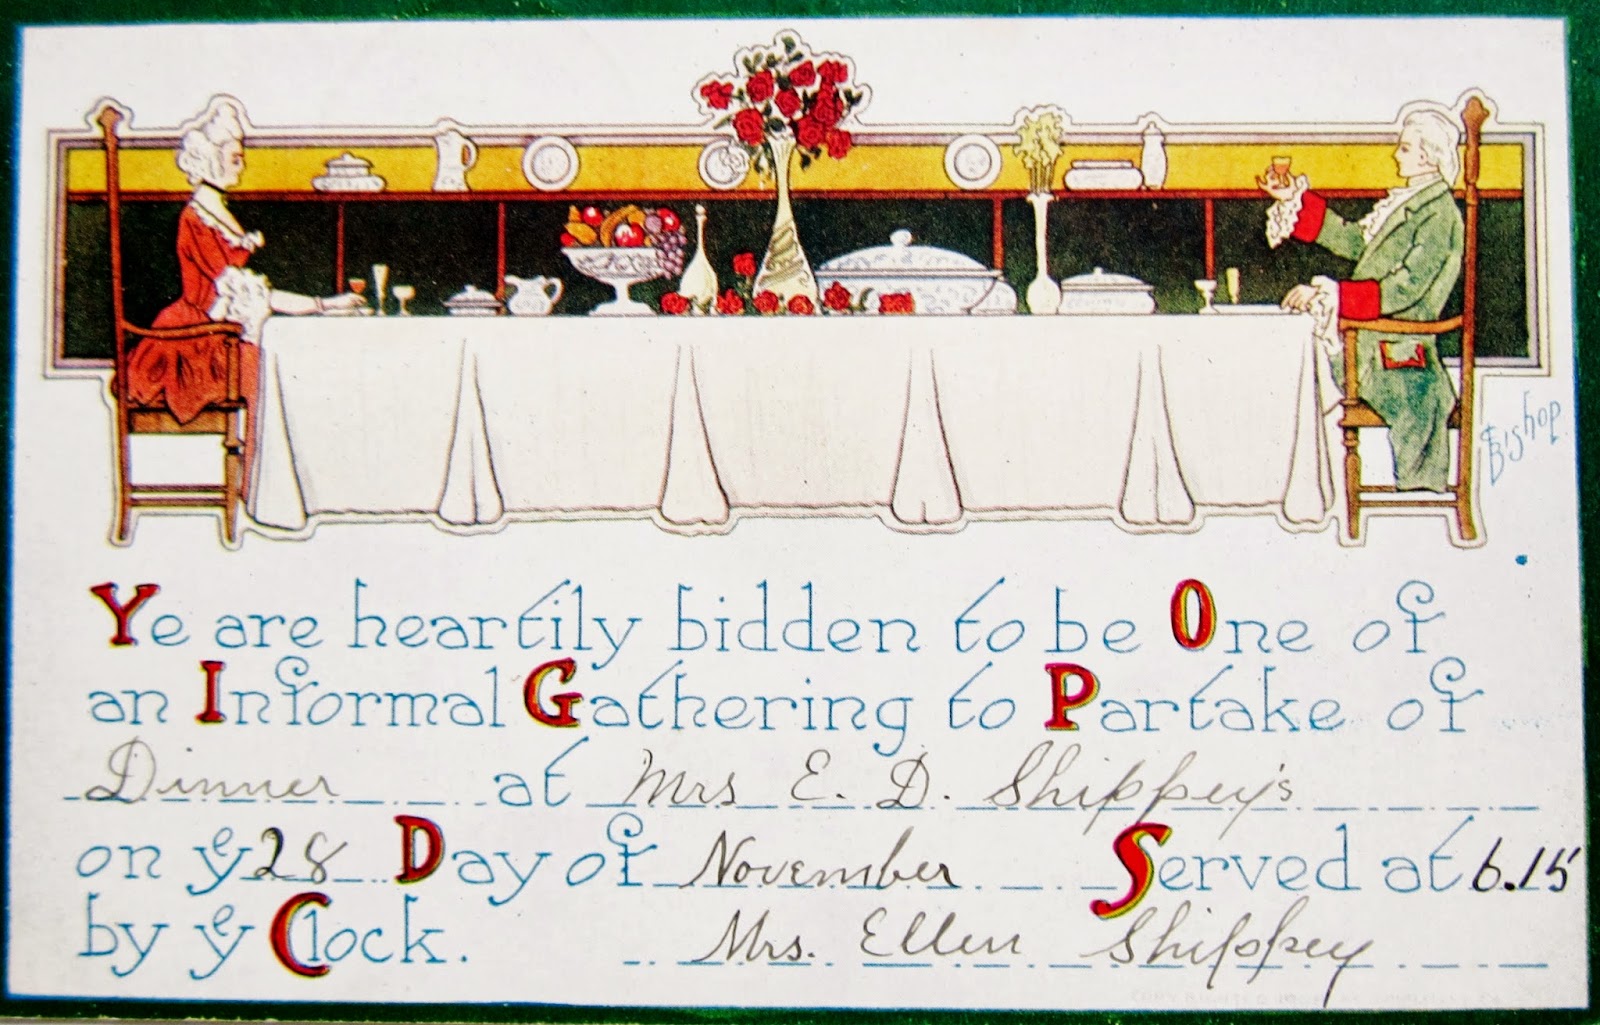 Bishop
Ye are heartily bidden to be One of
an Informal Gathering to Partake of
Dinner at Mrs E. D. Shippey's
on ye 28 Day of November Served at 6.15
by ye Clock. Mrs. Ellen Shippey